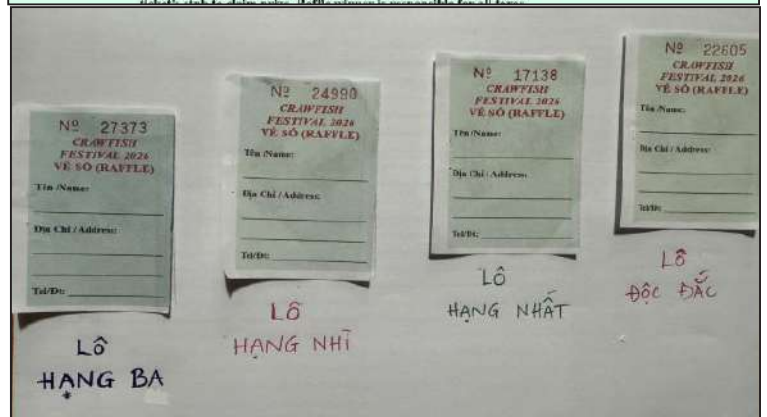 ticket's stub to claim prize. Raffle winner is responsible for all taxes
Nº 27373
CRAWFISH
FESTIVAL 2026
VÉ SỐ (RAFFLE)
Tên /Name:
Địa Chỉ / Address:
Tel/Đt:
LÔ
HẠNG BA
Nº 24990
CRAWFISH
FESTIVAL 2026
VÉ SỐ (RAFFLE)
Tên /Name:
Địa Chỉ / Address:
Tel/Đt:
LÔ
HẠNG NHÌ
Nº 17138
CRAWFISH
FESTIVAL 2026
VÉ SỐ (RAFFLE)
Tên /Name:
Địa Chỉ / Address:
Tel/Đt:
LÔ
HẠNG NHẤT
Nº 22605
CRAWFISH
FESTIVAL 2026
VÉ SỐ (RAFFLE)
Tên /Name:
Địa Chỉ / Address:
Tel/Đt:
LÔ
ĐỘC ĐẮC